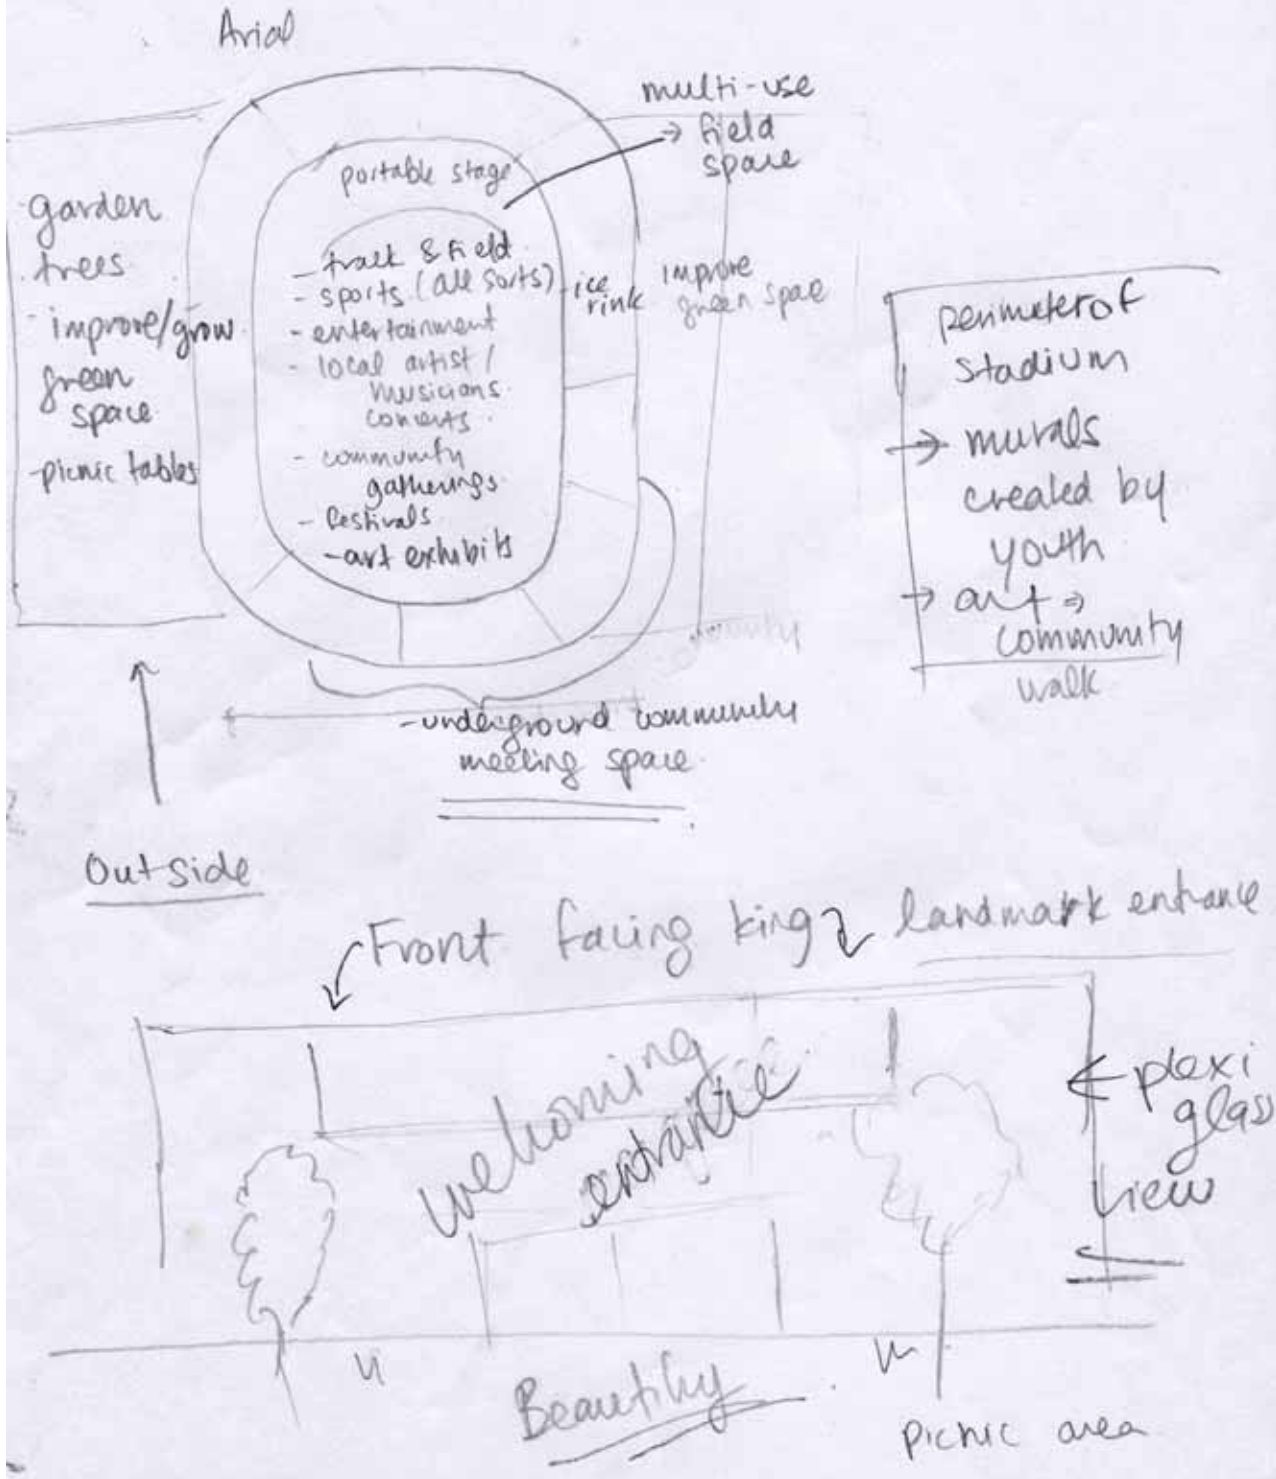 Arial
multi-use
→ field
space
portable stage
garden
trees
- improve/grow
green
space
- picnic tables
- track & field
- sports (all sorts)
- entertainment
- local artist /
musicians
concerts
- community
gatherings
- festivals
- art exhibits
- ice
rink
improve
green space
perimeter of
stadium
→ murals
created by
youth
→ art ⇒
community
walk
- underground community
meeting space
Outside
Front facing king
landmark entrance
welcoming
entrance
← plexi
glass
view
Beautify
picnic area